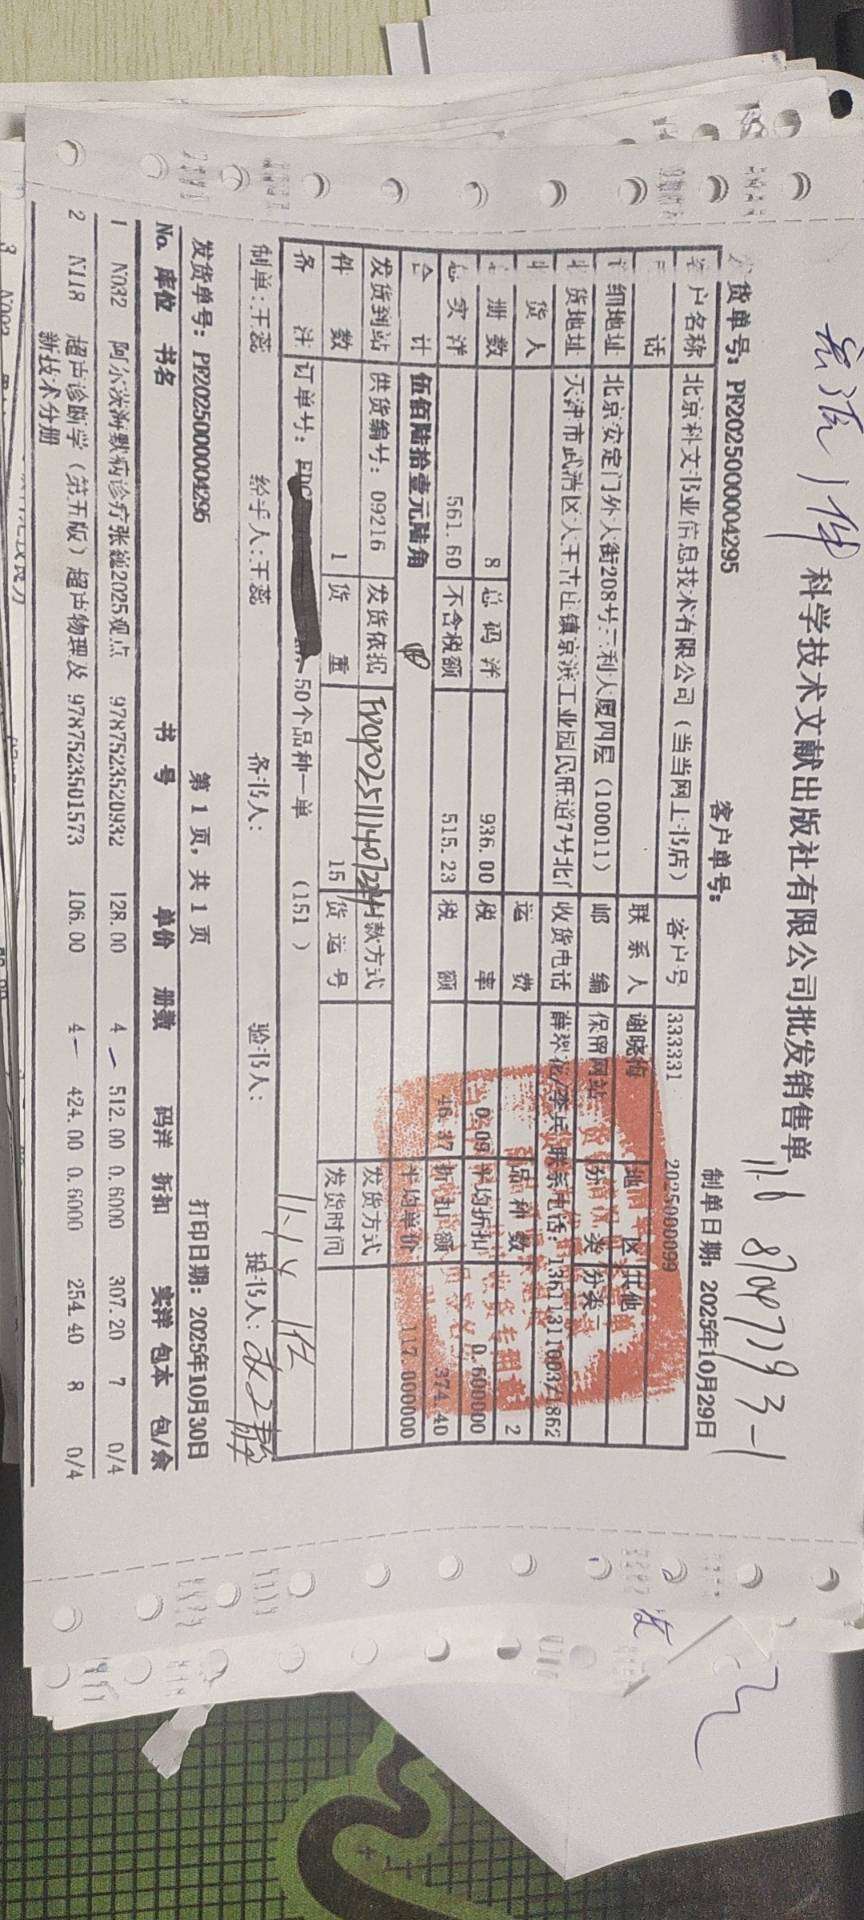 科学技术文献出版社有限公司批发销售单
货单号：PF2025000004295 客户单号： 制单日期：2025年10月29日
户名称 北京科文书业信息技术有限公司（当当网上书店） 客户号 333331 2025000099
话 联系人 谢晓梅 地区 其他
细地址 北京安定门外大街208号三利大厦四层（100011） 邮编 保留网站 分类 分类二
货地址 天津市武清区大王古庄镇京滨工业园民旺道7号北门 收货电话 薛翠花/李兵 联系电话：13611311003/1862
货人 运费 品种数 2
册数 8 总码洋 936.00 税率 0.09 平均折扣 0.600000
总实洋 561.60 不含税额 515.23 税额 46.37 折扣额 374.40
合计 伍佰陆拾壹元陆角 平均单价 117.000000
发货到站 供货编号：09216 发货依据 付款方式 发货方式
件数 1 货重 15 货运号 发货时间
备注 订单号： 50个品种一单 （151） 11-14
制单：王蕊 经手人：王蕊 备书人： 验书人： 提书人：
发货单号：PF2025000004295 第 1 页，共 1 页 打印日期：2025年10月30日
No. 库位 书名 书号 单价 册数 码洋 折扣 实洋 包本 包/余
1 N032 阿尔茨海默病诊疗张巍2025观点 9787523520932 128.00 4 512.00 0.6000 307.20 7 0/4
2 N118 超声诊断学（第五版）超声物理及 9787523501573 106.00 4 424.00 0.6000 254.40 8 0/4
新技术分册